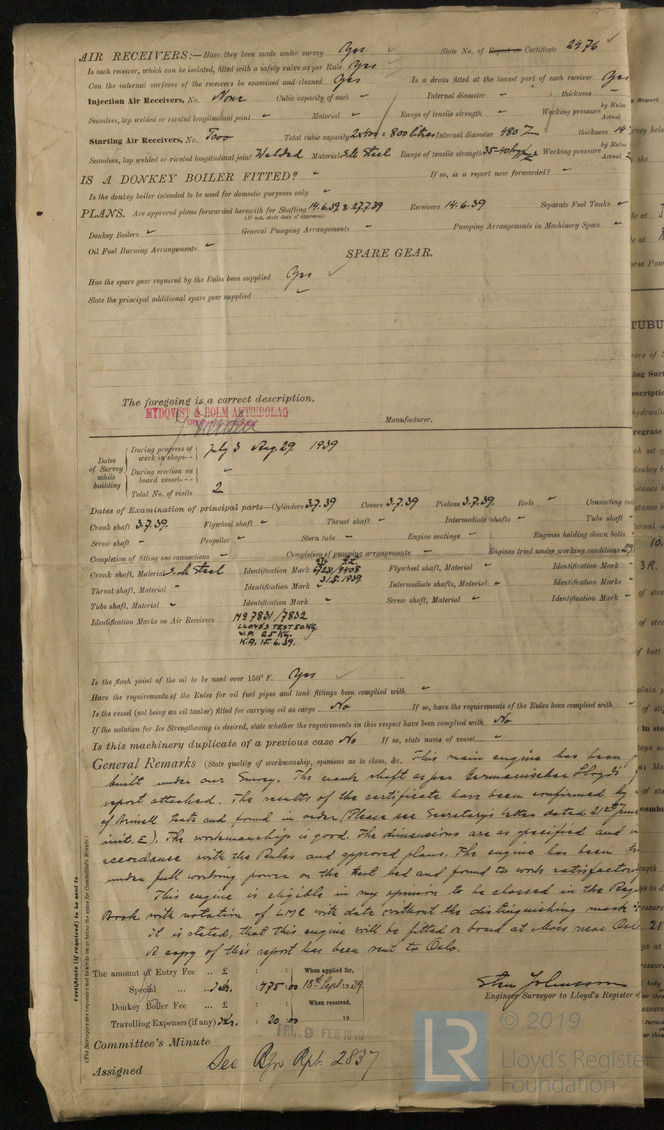 AIR RECEIVERS:—Have they been made under survey Yes State No. of Report or Certificate 2476
Is each receiver, which can be isolated, fitted with a safety valve as per Rule Yes
Can the internal surfaces of the receivers be examined and cleaned Yes Is a drain fitted at the lowest part of each receiver Yes
Injection Air Receivers, No. None Cubic capacity of each " Internal diameter " thickness "
Seamless, lap welded or riveted longitudinal joint " Material " Range of tensile strength " Working pressure by Rules Actual
Starting Air Receivers, No. Two Total cubic capacity 2x400 = 800 litres Internal diameter 480 thickness 14
Seamless, lap welded or riveted longitudinal joint Welded Material S.M. Steel Range of tensile strength Working pressure by Rules Actual
IS A DONKEY BOILER FITTED? " If so, is a report now forwarded? "
Is the donkey boiler intended to be used for domestic purposes only "
PLANS. Are approved plans forwarded herewith for Shafting 14.6.39 & 27.7.39 Receivers 14.6.39 Separate Fuel Tanks "
(If not, state date of approval)
Donkey Boilers " General Pumping Arrangements " Pumping Arrangements in Machinery Space "
Oil Fuel Burning Arrangements "
SPARE GEAR.
Has the spare gear required by the Rules been supplied Yes
State the principal additional spare gear supplied "
The foregoing is a correct description,
NYDQVIST & HOLM AKTIEBOLAG
Manufacturer.
Dates of Survey while building
During progress of work in shops - - July 3 Aug. 29 1939
During erection on board vessel - - - "
Total No. of visits 2
Dates of Examination of principal parts—Cylinders 3.7.39 Covers 3.7.39 Pistons 3.7.39. Rods " Connecting
Crank shaft 3.7.39. Flywheel shaft " Thrust shaft " Intermediate shafts " Tube shaft "
Screw shaft " Propeller " Stern tube " Engine seatings " Engines holding down bolts "
Completion of fitting sea connections " Completion of pumping arrangements " Engines tried under working conditions 29
Crank shaft, Material S.M. Steel Identification Mark 31.5.1939 Flywheel shaft, Material " Identification Mark "
Thrust shaft, Material " Identification Mark " Intermediate shafts, Material " Identification Marks "
Tube shaft, Material " Identification Mark " Screw shaft, Material " Identification Mark "
Identification Marks on Air Receivers No 7831/7832
LLOYD'S TEST 50 KG.
W.P. 25 KG.
K.A. 15.6.39.
Is the flash point of the oil to be used over 150° F. Yes
Have the requirements of the Rules for oil fuel pipes and tank fittings been complied with "
Is the vessel (not being an oil tanker) fitted for carrying oil as cargo No If so, have the requirements of the Rules been complied with "
If the notation for Ice Strengthening is desired, state whether the requirements in this respect have been complied with No
Is this machinery duplicate of a previous case No If so, state name of vessel "
General Remarks (State quality of workmanship, opinions as to class, &c. This main engine has been
built under our Survey. The crank shaft as per Germanischer Lloyds
report attached. The results of the certificate have been confirmed by
of Brinell tests and found in order (Please see Secretary's letter dated 21st June
init. E). The workmanship is good. The dimensions are as specified and in
accordance with the Rules and approved plans. The engine has been
under full working power on the test bed and found to work satisfactory
This engine is eligible in my opinion to be classed in the Reg.
Book with notation of LMC with date without the distinguishing mark
It is stated, that this engine will be fitted on board at Moss near Oslo.
A copy of this report has been sent to Oslo.
Certificate (if required) to be sent to
(The Surveyors are requested not to write on or below the space for Committee's Minute.)
The amount of Entry Fee .. £ : : When applied for,
Special .. Kr. : 475:00 18th Sept. 1939
Donkey Boiler Fee .. £ : : When received,
Travelling Expenses (if any) Kr. : 20:00 19
Engineer Surveyor to Lloyd's Register of
FRI. 9 FEB 1940
Committee's Minute
Assigned See Rpt. 2837
LR © 2019
Lloyd's Register
Foundation